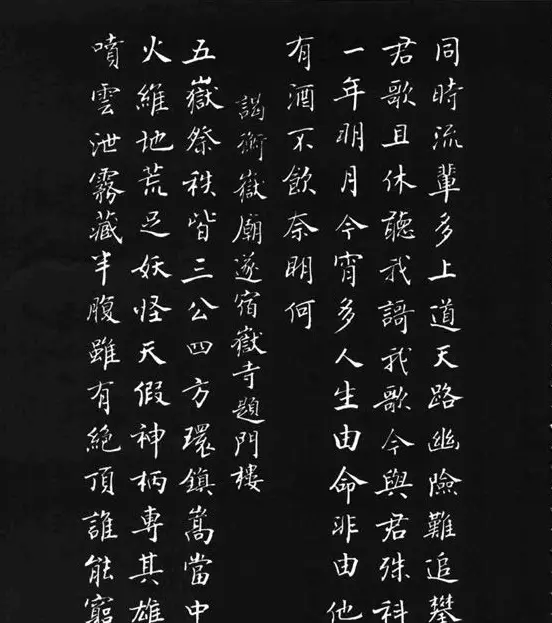 同時流輩多上道天路幽險難追攀
君歌且休聽我謌我歌今與君殊科
一年明月今宵多人生由命非由他
有酒不飲奈明何
謁衡嶽廟遂宿嶽寺題門樓
五嶽祭秩皆三公四方環鎮嵩當中
火維地荒足妖怪天假神柄專其雄
噴雲泄霧藏半腹雖有絶頂誰能窮